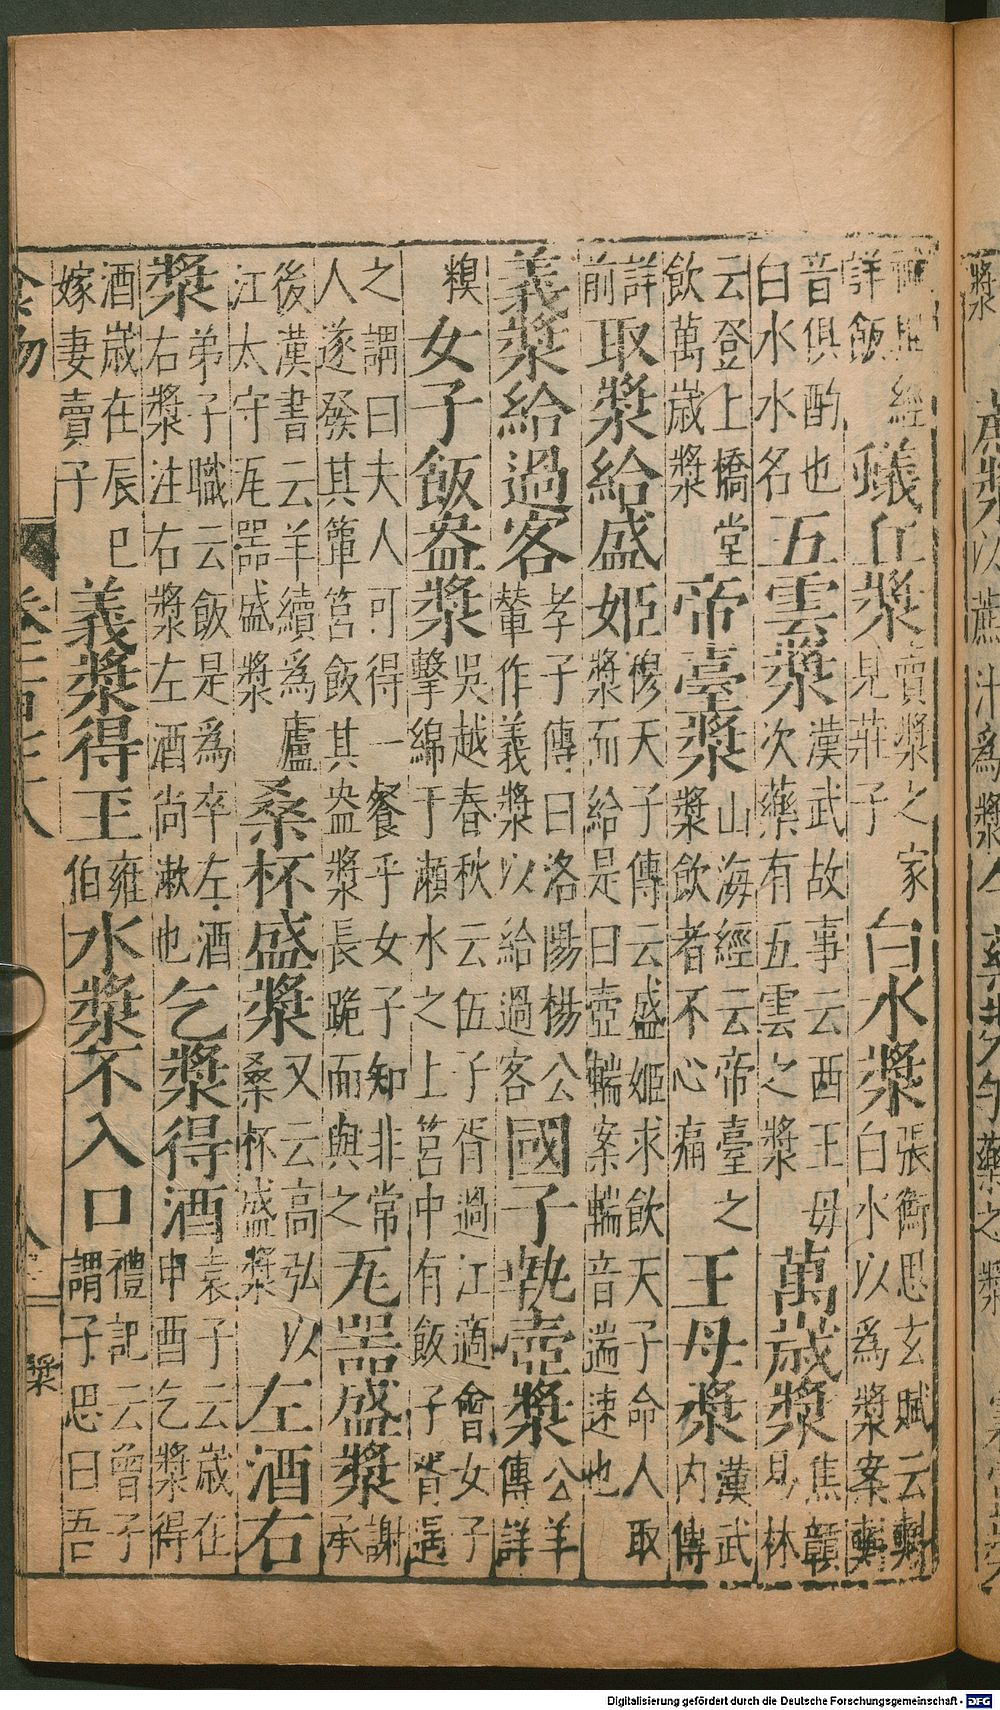 神異經詳飯蟻丘漿賣漿之家見莊子白水漿張衡思玄賦云㪺白水以為漿案㪺
音俱酌也白水水名五雲漿漢武故事云西王母次藥有五雲之漿萬歲漿焦贛易林
云登上橋堂飲萬歲漿帝臺漿山海經云帝臺之漿飲者不心痛王母漿漢武內傳
詳前取漿給盛姬穆天子傳云盛姬求飲天子命人取漿而給是曰壺輲案輲音遄速也
義漿給過客孝子傳曰洛陽楊公輦作義漿以給過客國子執壺漿公羊傳詳
糗女子飯盎漿吳越春秋云伍子胥過江適會女子擊綿于瀨水之上筥中有飯子胥遇
之謂曰夫人可得一餐乎女子知非常人遂發其簞筥飯其盎漿長跪而與之瓦器盛漿謝承
後漢書云羊續為廬江太守瓦器盛漿桑杯盛漿又云高弘以桑杯盛漿左酒右
漿弟子職云飯是為卒左酒右漿注右漿左酒尚漱也乞漿得酒袁子云歲在申酉乞漿得
酒歲在辰巳嫁妻賣子義漿得玉雍伯水漿不入口禮記云曾子謂子思曰吾
食物
漿
Digitalisierung gefördert durch die Deutsche Forschungsgemeinschaft - DFG